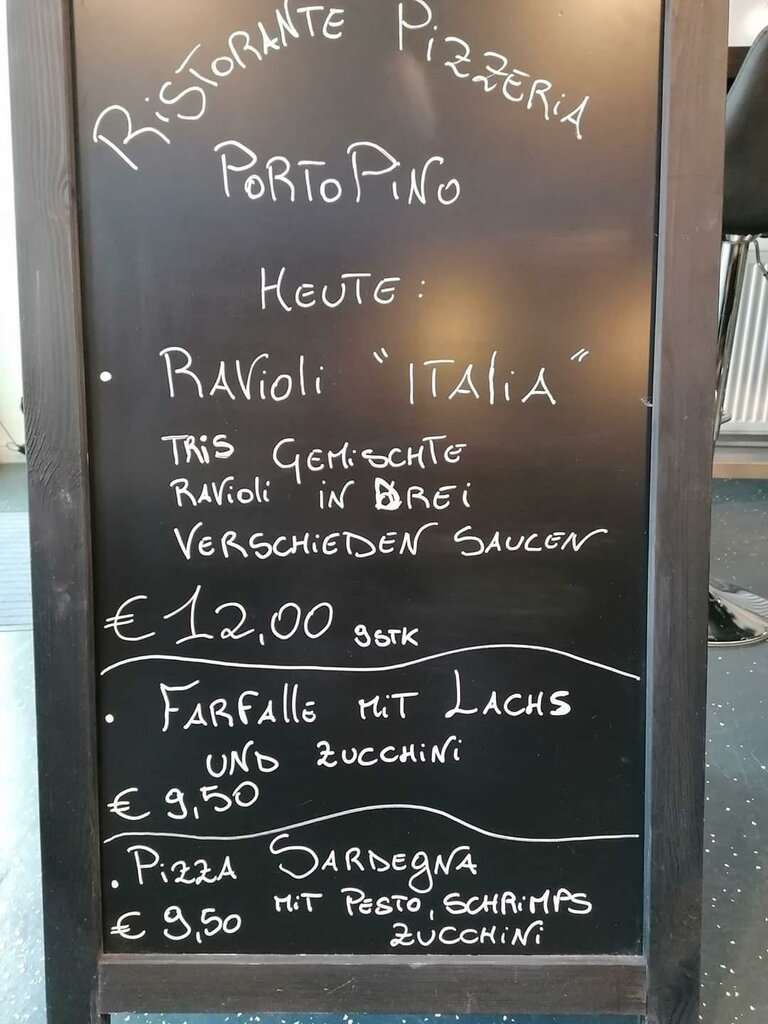 RISTORANTE PIZZERIA
PORTO PINO
HEUTE:
• RAVIOLI "ITALIA"
TRIS GEMISCHTE
RAVIOLI IN DREI
VERSCHIEDEN SAUCEN
€ 12,00 9 STK
• FARFALLE MIT LACHS
UND ZUCCHINI
€ 9,50
• PIZZA SARDEGNA
MIT PESTO, SCHRIMPS
€ 9,50 ZUCCHINI